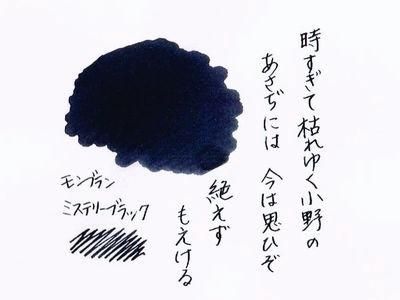 時すぎて枯れゆく小野の
あさぢには 今は思ひぞ
絶えず
もえける
モンブラン
ミステリーブラック